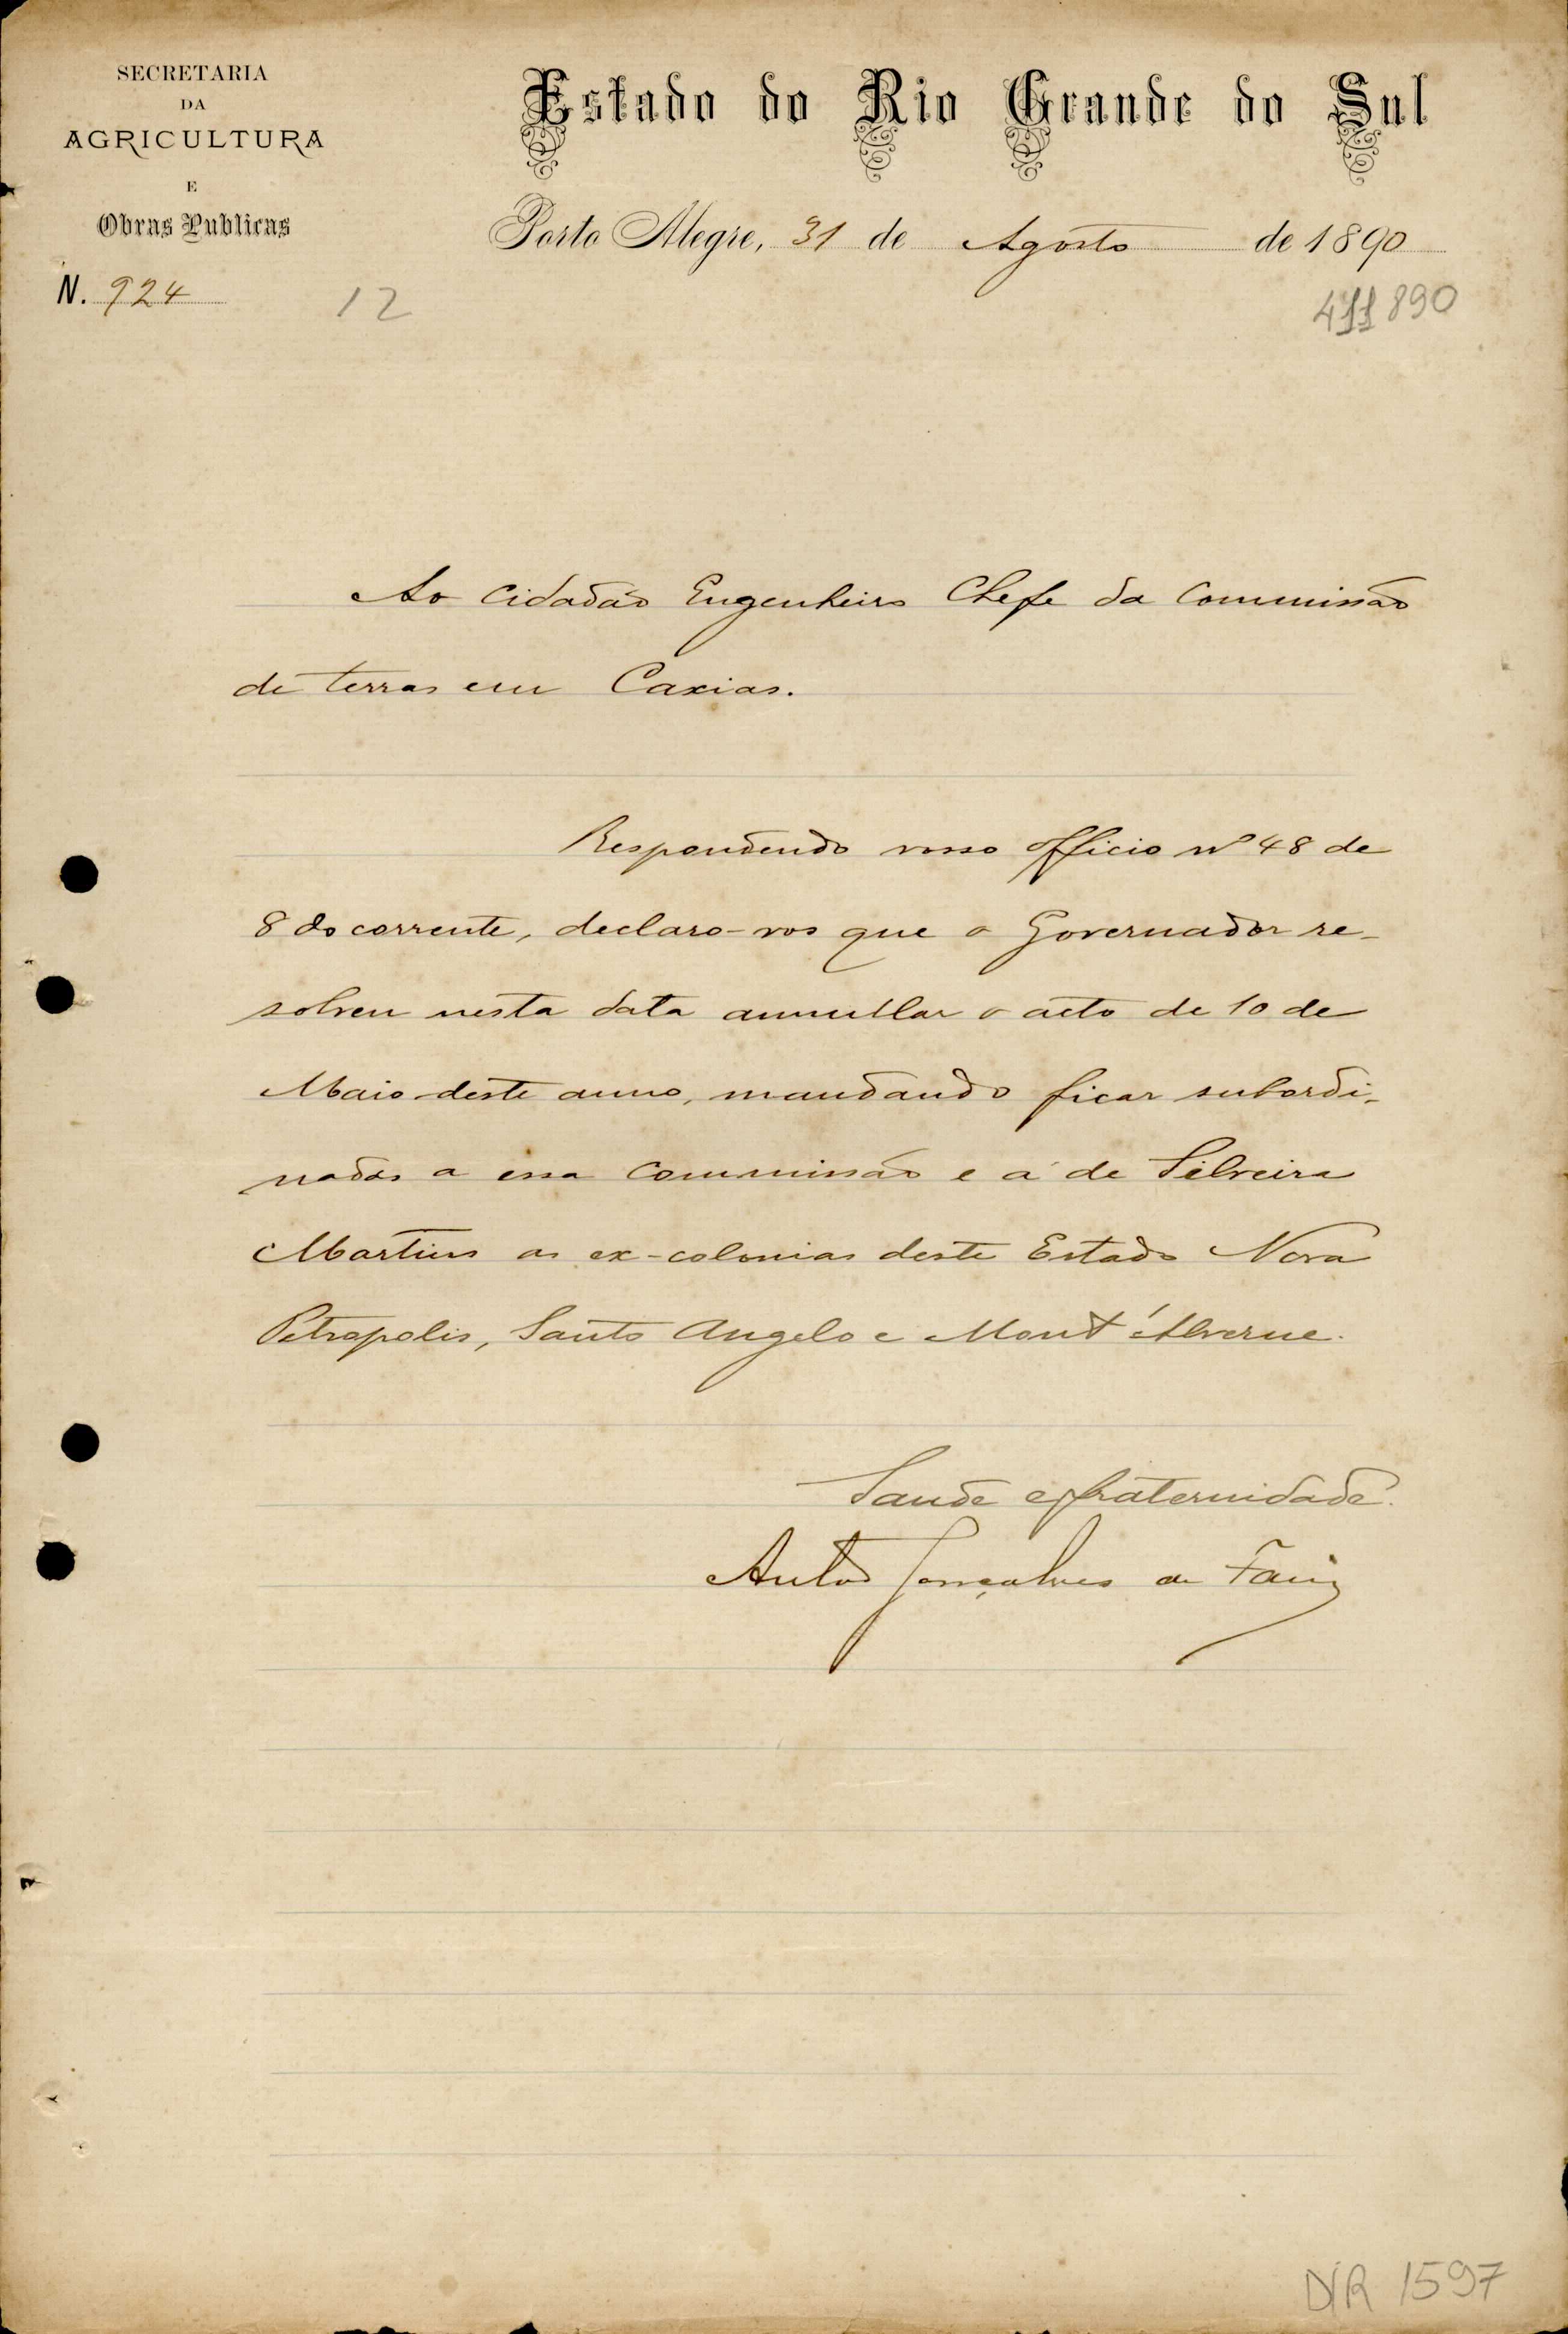 SECRETARIA
DA
AGRICULTURA
E
Obras Publicas
N. 924
12
Estado do Rio Grande do Sul
Porto Alegre, 31 de Agosto de 1890
890
Ao Cidadão Engenheiro Chefe da Commissão
de terras em Caxias.
Respondendo vosso officio nº 48 de
8 do corrente, declaro-vos que o Governador re-
solveu nesta data annullar o acto de 10 de
Maio deste anno, mandando ficar subordi-
nadas a essa Commissão e á de Silveira
Martins as ex-colonias deste Estado Nova
Petropolis, Santo Angelo e Mont'Alverne.
Saude e fraternidade.
Antº Gonçalves de Faria
DIR 1597